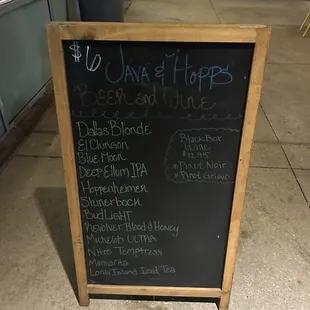 $6 Java & Hopps
Beer and Wine
Dallas Blonde
El Chingon
Blue Moon
Deep Ellum IPA
Hoppenheimer
Shinerbock
Bud Light
Revolver Blood & Honey
Michelob ULTRA
Nitro Temptress
Mamarita
Long Island Iced Tea
Black Box
Wine
$12.95
*Pinot Noir
*Pinot Grigio